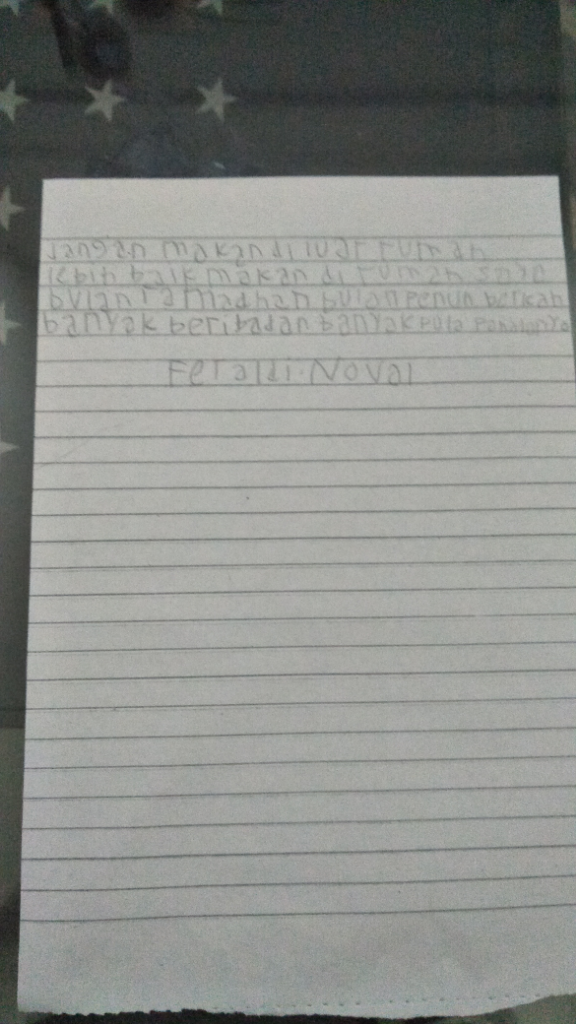 Jangan makan di luar rumah
lebih baik makan di rumah saja
bulan ramadhan bulan penuh berkah
banyak beribadah banyak pula pahalanya
Feraldi.Noval